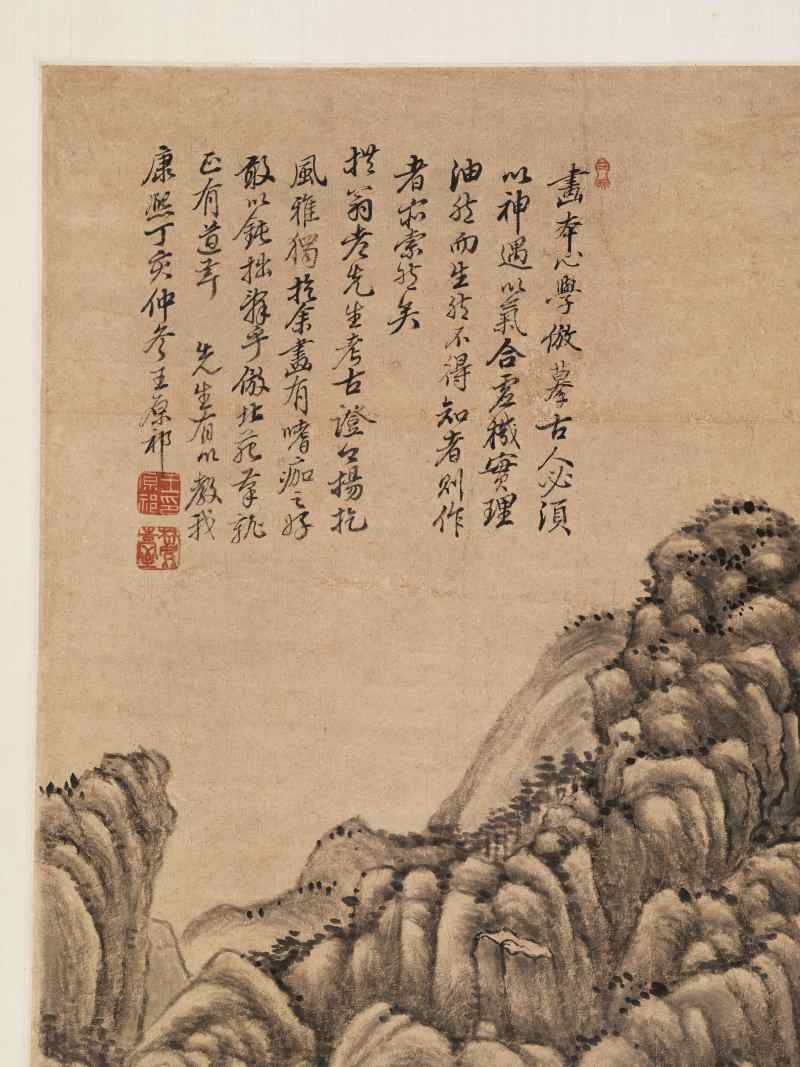 畫本心學倣摹古人必須
以神遇以氣合虛機實理
油然而生然不得知者則作
者亦索然矣
拱翁老先生考古證今揚扢
風雅獨於余畫有嗜痂之好
敢以鈍拙辭乎倣北苑筆就
正有道幸 先生有以教我
康熙丁亥仲冬王原祁
王原祁印
麓臺